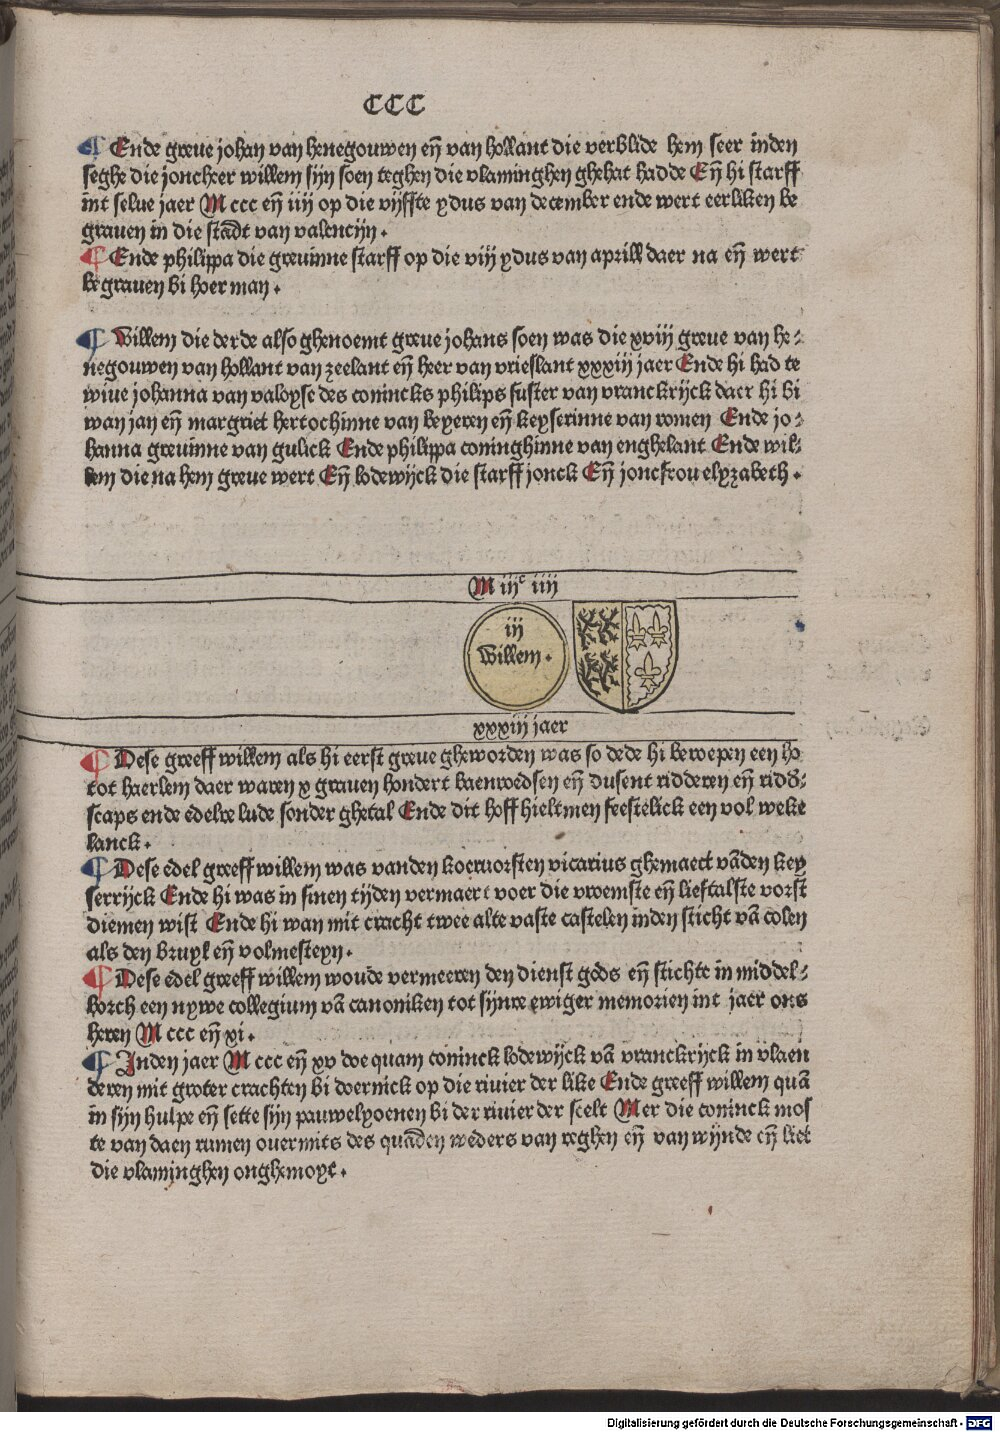 CCC
¶ Ende greue johan van henegouwen eñ van hollant die verblide hem seer inden
seghe die joncheer willem sijn soen teghen die vlaminghen ghehat hadde Eñ hi starff
int selue jaer M ccc eñ iiij op die vijffte ydus van december ende wert eerliken be
grauen in die stādt van valencijn.
¶ Ende philippa die greuinne starff op die viij ydus van aprill daer na eñ wert
begrauen bi hoer man.
¶ Willem die derde also ghenoemt greue johans soen was die xviij greue van he⸗
negouwen van hollant van zeelant eñ heer van vrieslant xxxiij jaer Ende hi had te
wiue johanna van valoyse des conincks philips suster van vranckrijck daer hi bi
wan jan eñ margriet hertochinne van beyeren eñ keyserinne van romen Ende jo⸗
hanna greuinne van gulick Ende philippa coninghinne van enghelant Ende wil⸗
lem die na hem greue wert Eñ lodewijck die starff jonck Eñ joncfrou elyzabeth.
M iijᶜ iiij
iij
Willem.
xxxiij jaer
¶ Dese greeff willem als hi eerst greue gheworden was so dede hi beroepen een ho
tot haerlem daer waren x grauen hondert baenroedsen eñ dusent ridderen eñ ridd⸗
scaps ende edelre lude sonder ghetal Ende dit hoff hieltmen feestelick een vol weke
lanck.
¶ Dese edel greeff willem was vanden koeruorsten vicarius ghemaect vādē key
serrijck Ende hi was in sinen tijden vermaert voer die vroemste eñ lieftalste vorst
diemen wist Ende hi wan mit cracht twee alte vaste castelen inden sticht vā colen
als den bruyl eñ volmesteyn.
¶ Dese edel greeff willem woude vermeeren den dienst gods eñ stichte in middel⸗
borch een nywe collegium vā canoniken tot sijnre ewiger memorien int jaer ons
heren M ccc eñ xi.
¶ Inden jaer M ccc eñ xv doe quam coninck lodewijck vā vranckrijck in vlaen
deren mit groter crachten bi doernick op die riuier der like Ende greeff willem quā
in sijn hulpe eñ sette sijn pauwelyoenen bi der riuier der scelt Mer die coninck mos
te van daen rumen ouermits des quāden weders van reghen eñ van wijnde eñ liet
die vlaminghen onghemoyt.
Digitalisierung gefördert durch die Deutsche Forschungsgemeinschaft - DFG